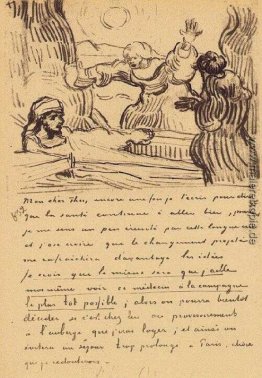 Mon cher Theo, encore une fois je t'écris pour dire
que la santé continue à aller bien, pourtant
je me sens un peu éreinté par cette longue crise
et j'ose croire que le changement projeté
me rafraichira davantage les idées.
Je crois que le mieux sera que j'aille
moi même voir ce médecin à la campagne
le plus tôt possible; alors on pourra bientôt
décider si c'est chez lui ou provisoirement
à l'auberge que j'irai loger; et ainsi on
évitera un séjour trop prolongé à Paris, chose
que je redouterais.